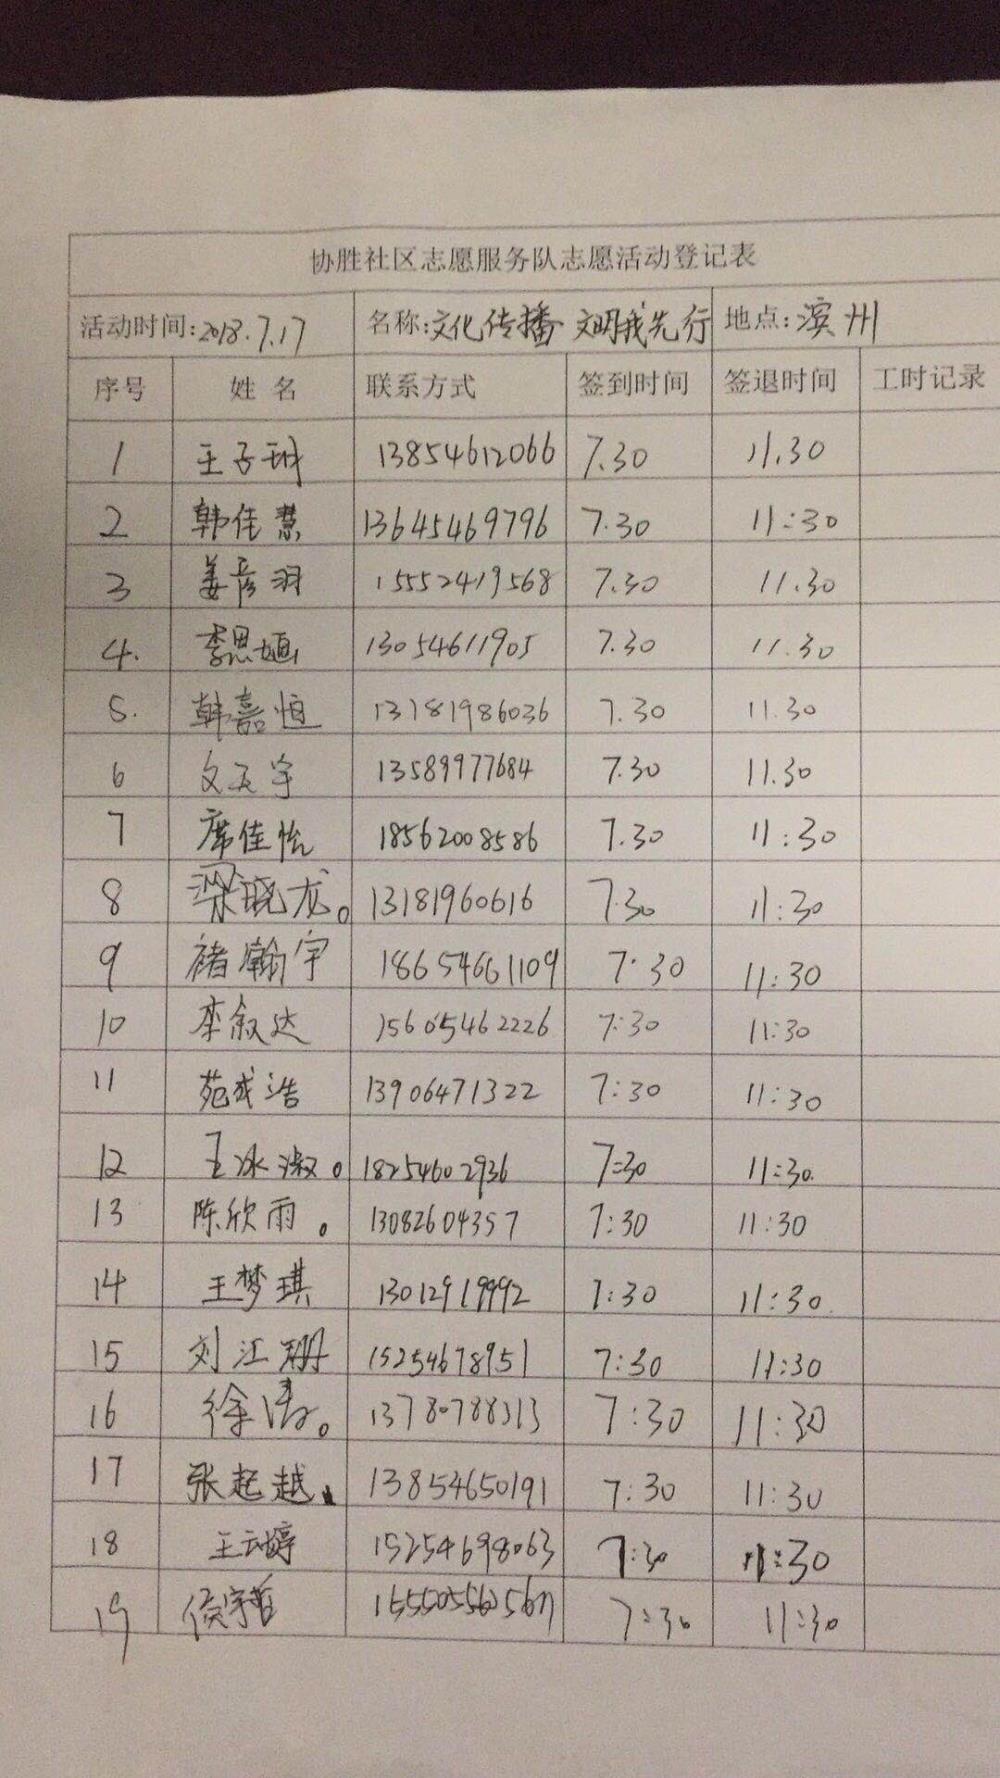 协胜社区志愿服务队志愿活动登记表
活动时间:2018.7.17 名称:文化传播 文明我先行 地点:滨州
序号 姓名 联系方式 签到时间 签退时间 工时记录
1 王子 13854612066 7.30 11.30
2 韩佳慧 13645469796 7.30 11:30
3 姜彦羽 15552419568 7.30 11.30
4. 李思 13054611905 7.30 11.30
5. 韩嘉恒 13181986036 7.30 11.30
6 文天宇 13589977684 7.30 11.30
7 席佳怡 18562008586 7.30 11:30
8 梁晓龙。 13181960616 7.30 11:30
9 褚瀚宇 18654661109 7.30 11:30
10 李叙达 15605462226 7:30 11:30
11 苑成浩 13906471322 7:30 11:30
12 王冰淑。 18254602936 7:30 11:30.
13 陈欣雨。 13082604357 7:30 11:30
14 王梦琪 7:30 11:30.
15 刘江翔 15254678951 7:30 11:30
16 徐涛。 13780788313 7:30 11:30
17 张起越 13854650191 7:30 11:30
18 王云婷 15254698063 7:30 11:30
19 侯宇哲 7:30 11:30